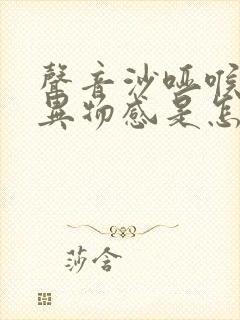 聲音沙哑喉
異物感是怎
莎含